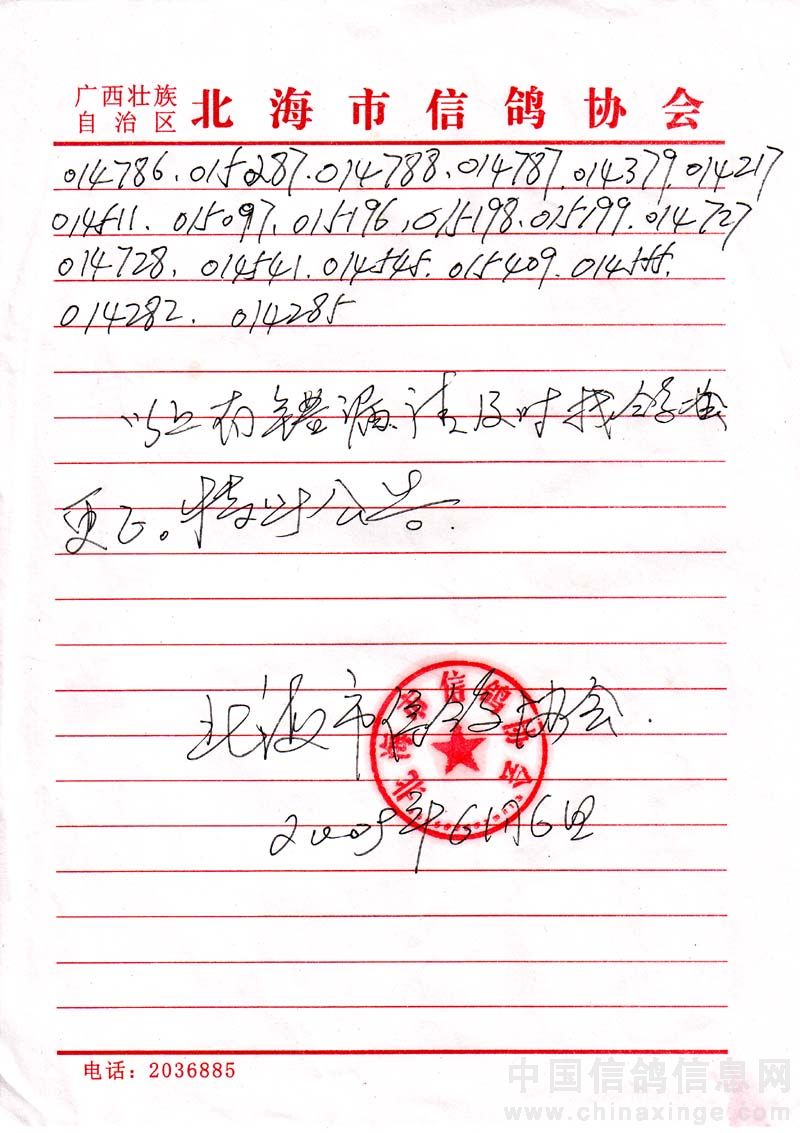 广西壮族
自治区 北海市信鸽协会
014786、015287、014788、014787、014379、014217
014511、015097、015196、015198、015199、014727
014728、014541、014545、015409、014555、
014282、014285
以上有错漏请及时找鸽会
更正。特此公告。
北海市信鸽协会.
2009年6月6日
北海市信鸽协会
电话：2036885
中国信鸽信息网
www.chinaxinge.com